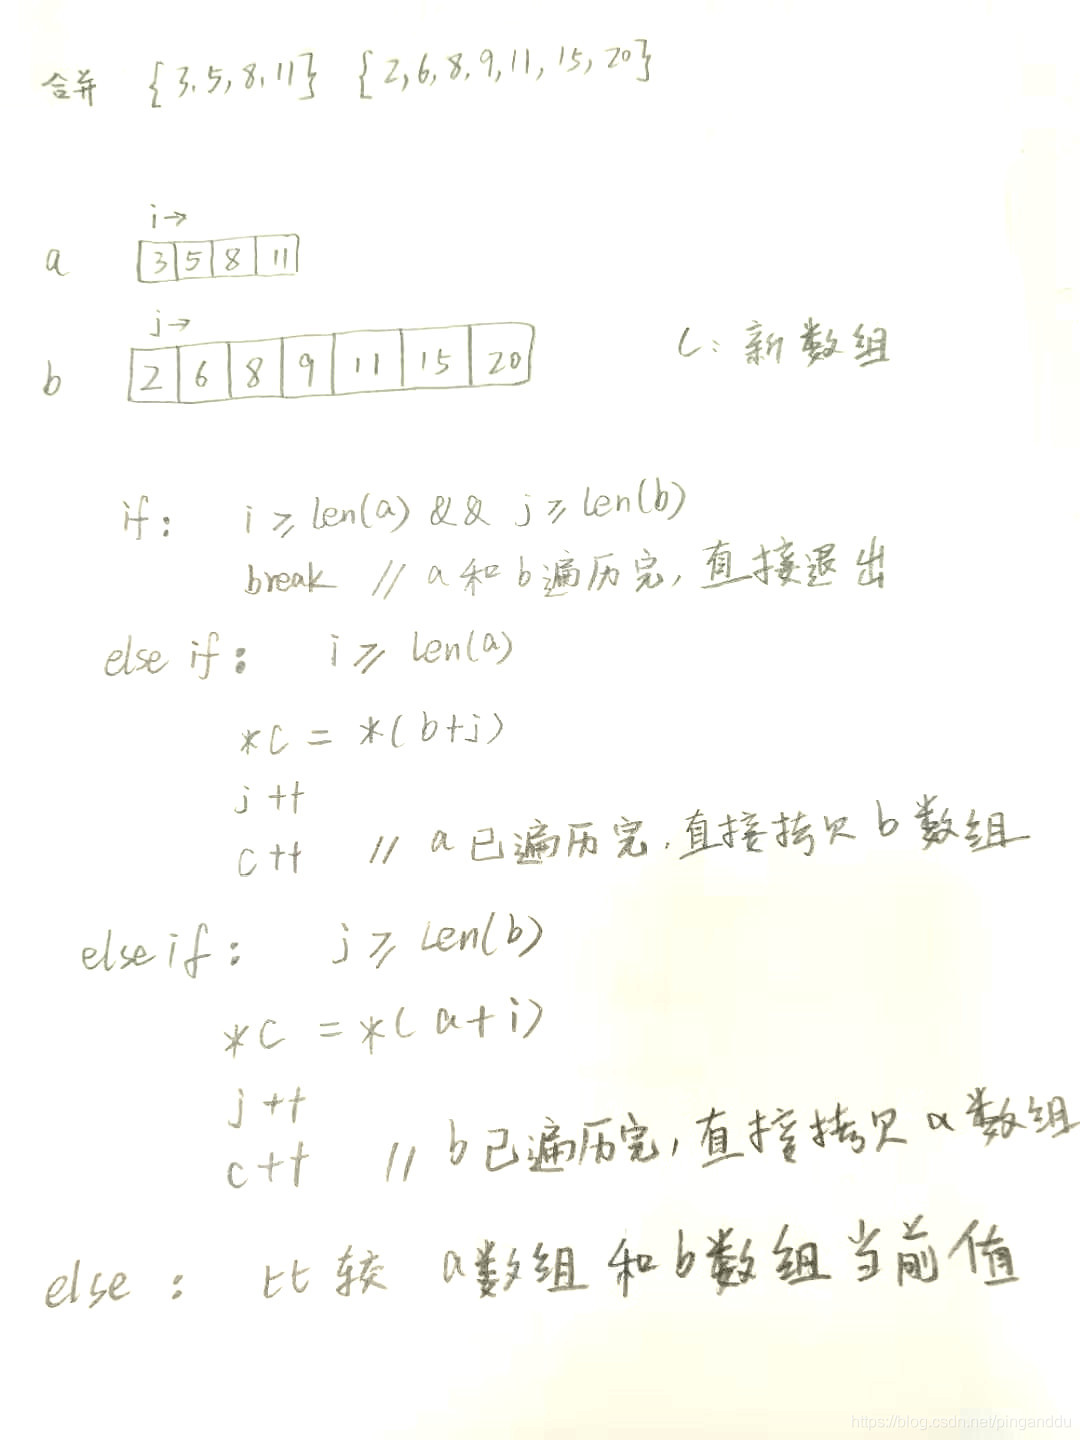 合并 {3,5,8,11} {2,6,8,9,11,15,20}
i→
a 3 5 8 11
j→
b 2 6 8 9 11 15 20
C: 新数组
if: i ⩾ len(a) && j ⩾ len(b)
break // a和b遍历完,直接退出
else if: i ⩾ len(a)
*C = *(b+j)
j++
c++ // a已遍历完,直接拷贝b数组
else if: j ⩾ len(b)
*C = *(a+i)
j++
c++ // b已遍历完,直接拷贝a数组
else: 比较 a数组和b数组当前值
https://blog.csdn.net/pinganddu